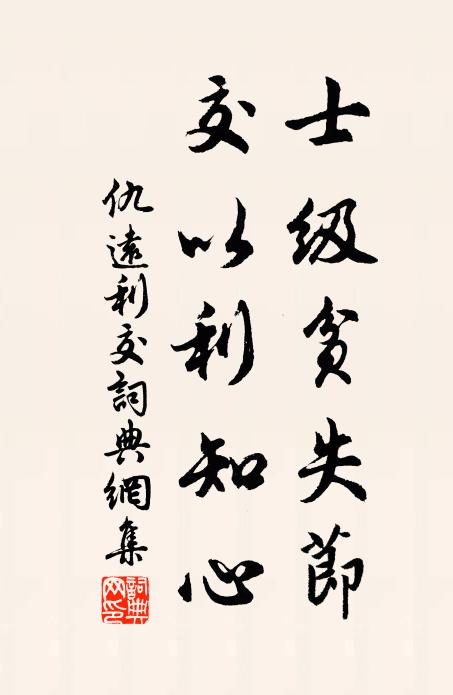 士級貧失節
交以利知心
仇遠利交詞典網集
詞典网印